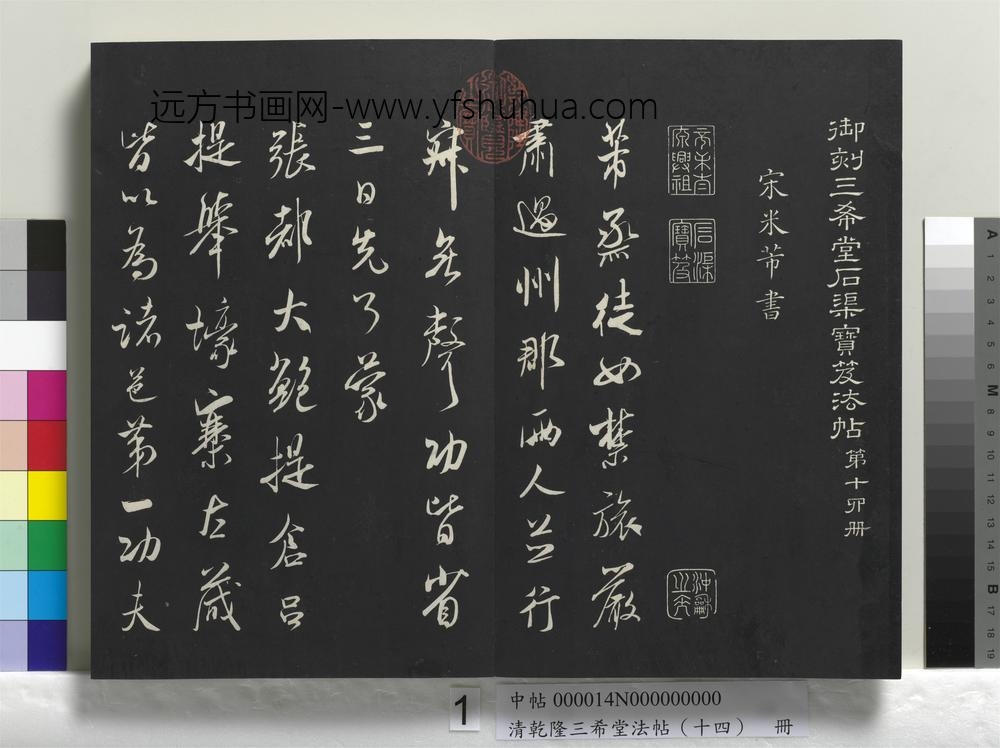 御刻三希堂石渠寶笈法帖第十四冊
宋米芾書
芾烝徒如禁旅嚴
肅過州郡兩人並行
寂無聲功皆省
三日先了蒙
張都大鮑提倉呂
提舉壕寨左藏
皆以為諸邑第一功夫
远方书画网-www.yfshuhua.com
1
中帖 000014N000000000
清乾隆三希堂法帖（十四） 冊
A
1
2
3
4
5
6
M
8
9
10
11
12
13
14
15
B
17
18
19